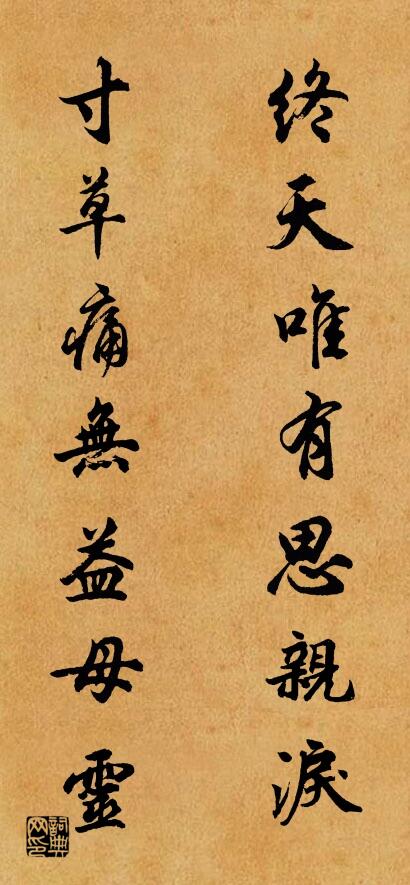 終天唯有思親淚
寸草痛無益母靈
詞典网印